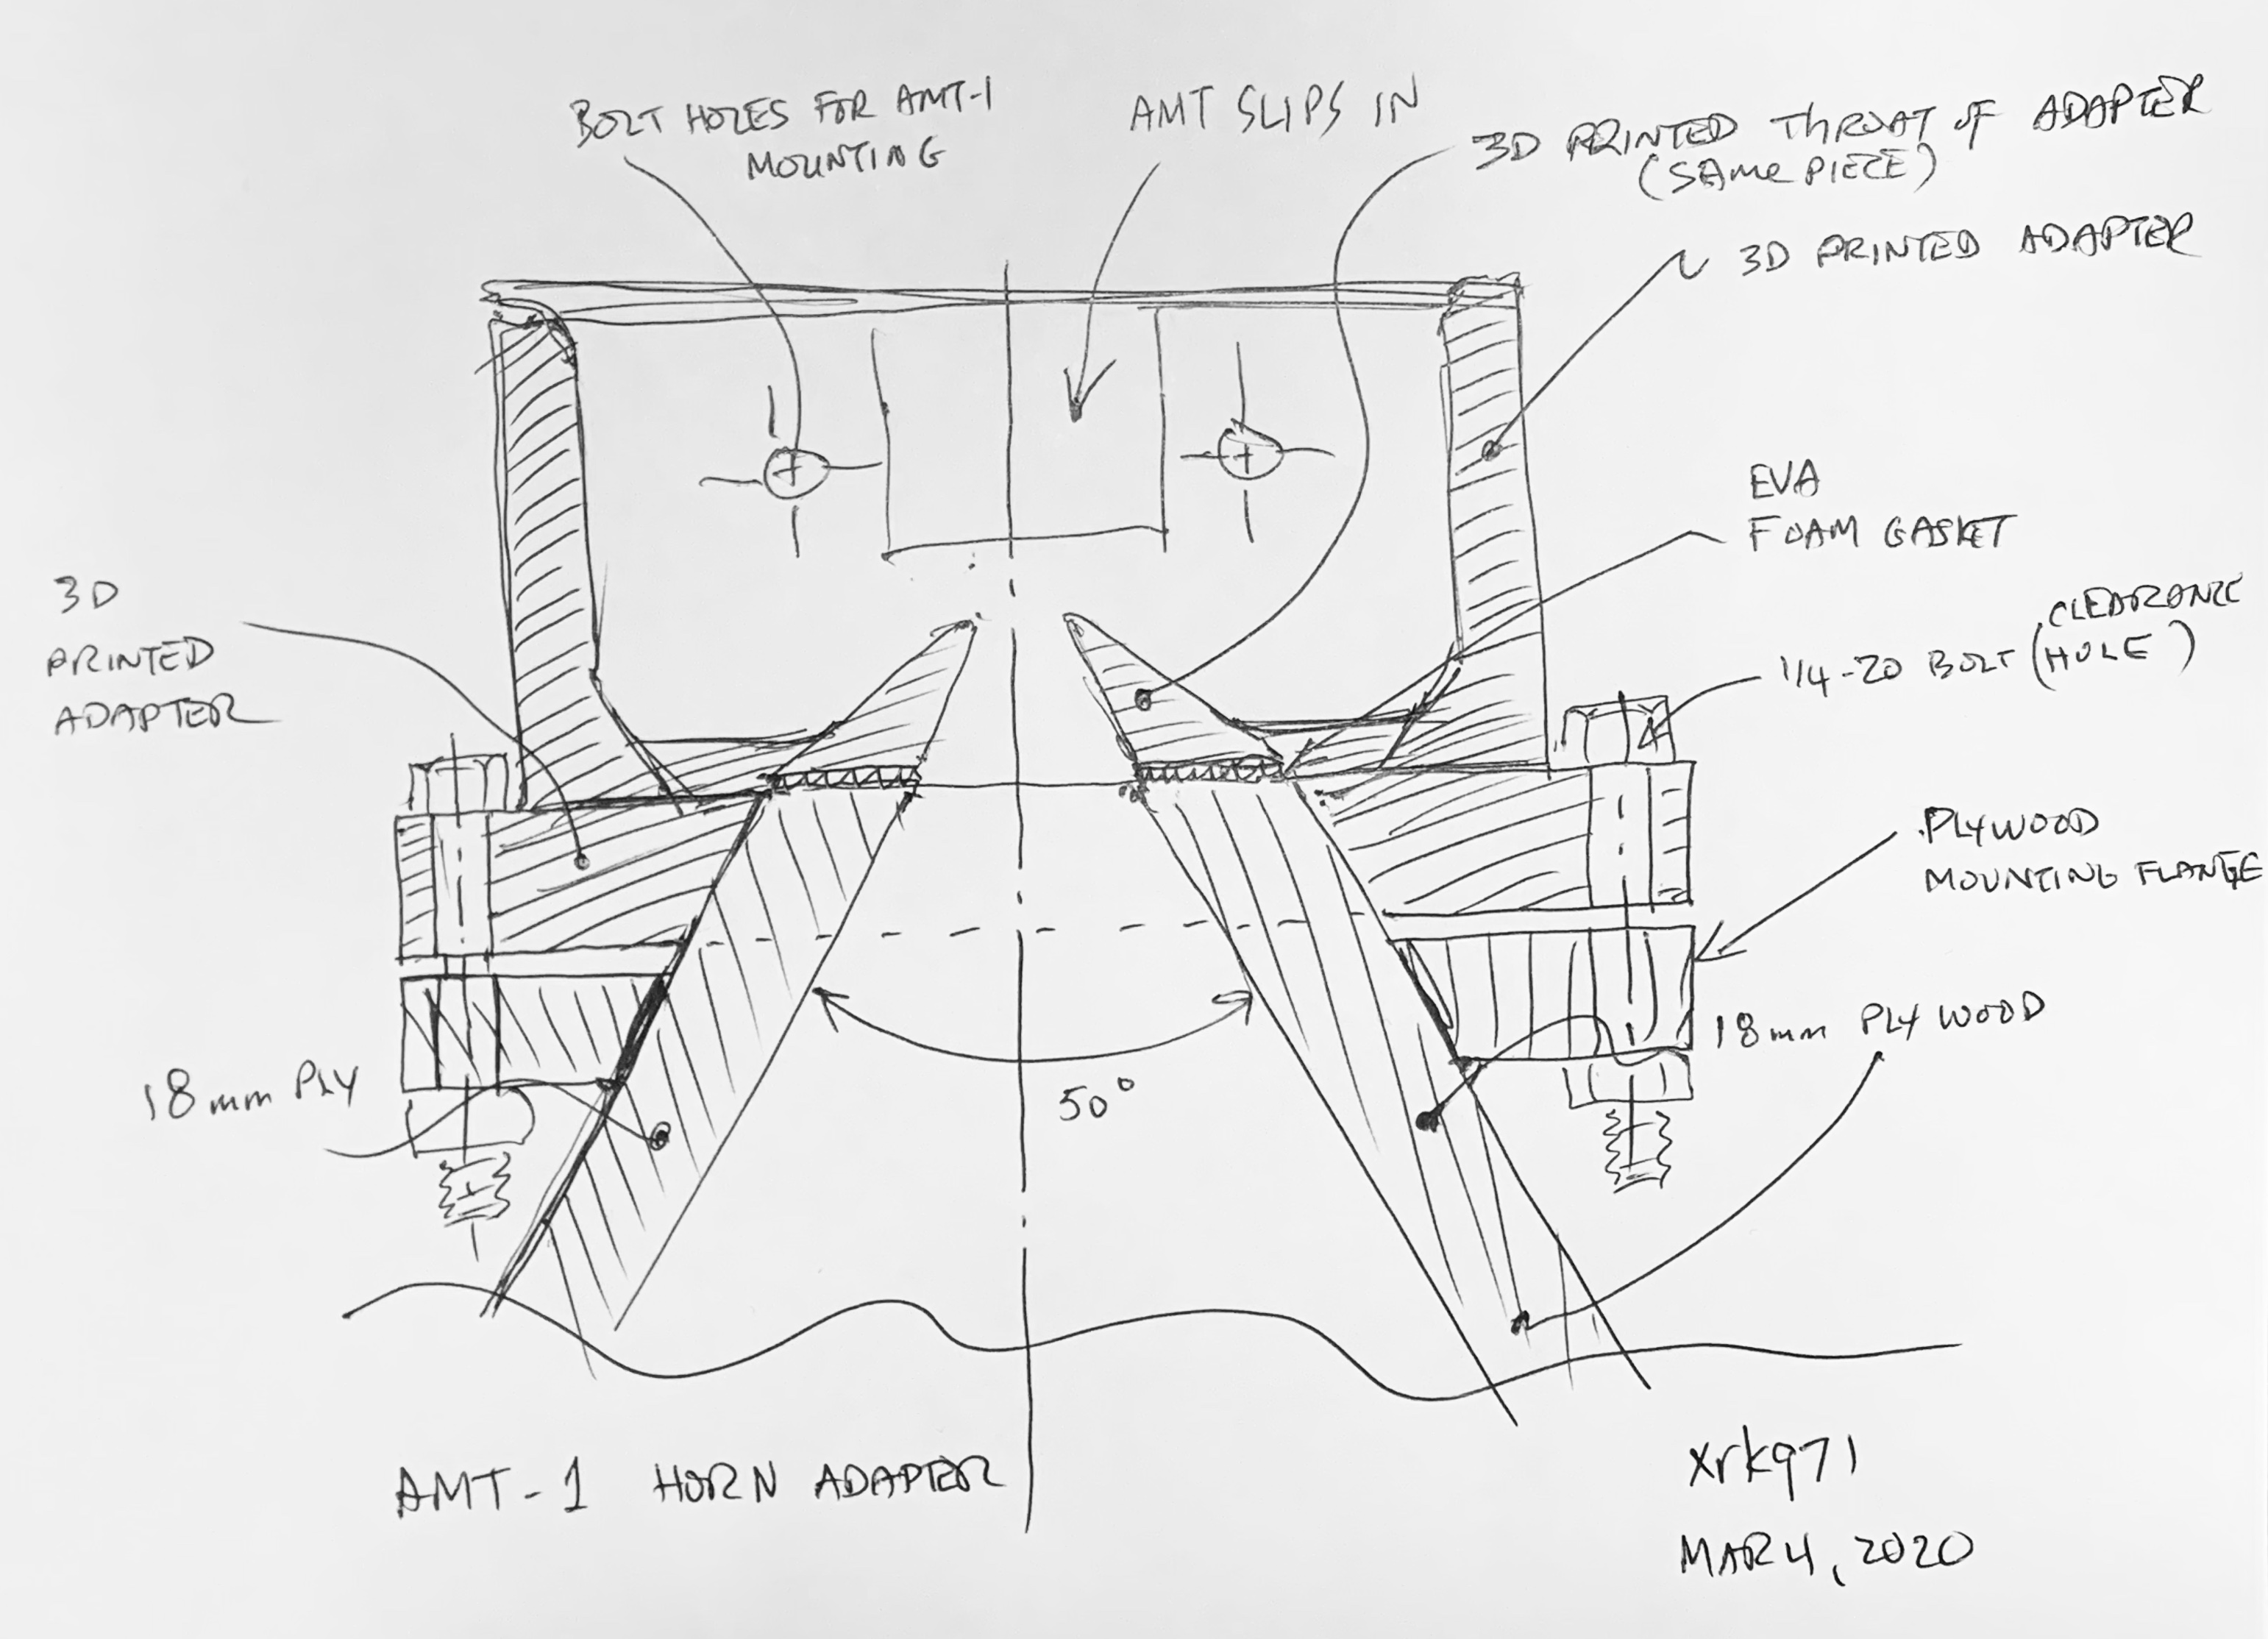 BOLT HOLES FOR AMT-1
MOUNTING
AMT SLIPS IN
3D PRINTED THROAT OF ADAPTER
(SAME PIECE)
3D PRINTED ADAPTER
EVA
FOAM GASKET
CLEARANCE
1/4-20 BOLT (HOLE)
3D
PRINTED
ADAPTER
PLYWOOD
MOUNTING FLANGE
18mm PLYWOOD
18mm PLY
50°
AMT-1 HORN ADAPTER
xrk971
MAR 4, 2020